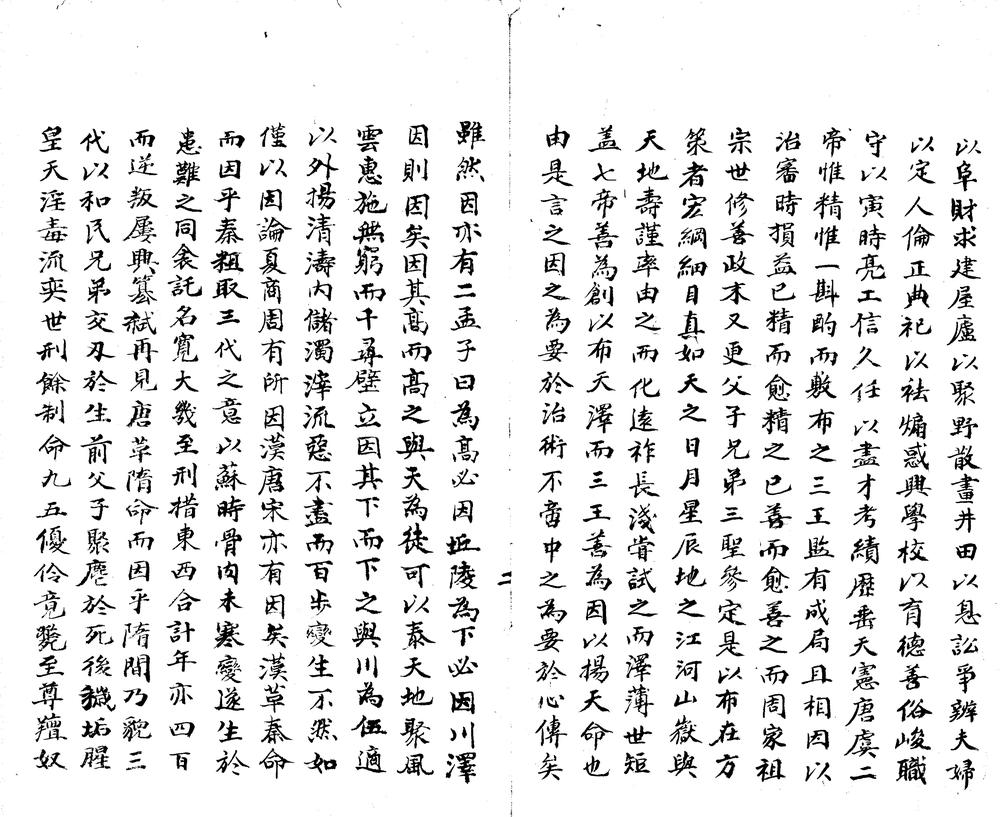 以阜財求建屋廬以聚野散畫井田以息訟爭辨夫婦
以定人倫正典祀以祛煽惑興學校以育德善俗峻職
守以寅時亮工信久任以盡才考績歷垂天憲唐虞二
帝惟精惟一斟酌而敷布之三王監有成局且相因以
治審時損益已精而愈精之已善而愈善之而周家祖
宗世修善政末又更父子兄弟三聖參定是以布在方
策者宏綱細目真如天之日月星辰地之江河山嶽與
天地壽謹率由之而化遠祚長淺嘗試之而澤薄世短
盖七帝善為創以布天澤而三王善為因以揚天命也
由是言之因之為要於治術不啻中之為要於心傳矣
二
雖然因亦有二孟子曰為髙必因丘陵為下必因川澤
因則因矣因其髙而髙之與天為徒可以泰天地聚風
雲惠施無窮而千尋壁立因其下而下之與川為伍適
以外揚清濤内儲濁滓流惡不盡而百步變生不然如
僅以因論夏商周有所因漢唐宋亦有因矣漢革秦命
而因乎秦粗取三代之意以蘇時骨肉未寒變遂生於
患難之同衾託名寬大幾至刑措東西合計年亦四百
而逆叛屢興簒弑再見唐革隋命而因乎隋間乃貌三
代以和民兄弟交刃於生前父子聚麀於死後穢垢腥
皇天淫毒流奕世刑餘制命九五優伶竟斃至尊羶奴